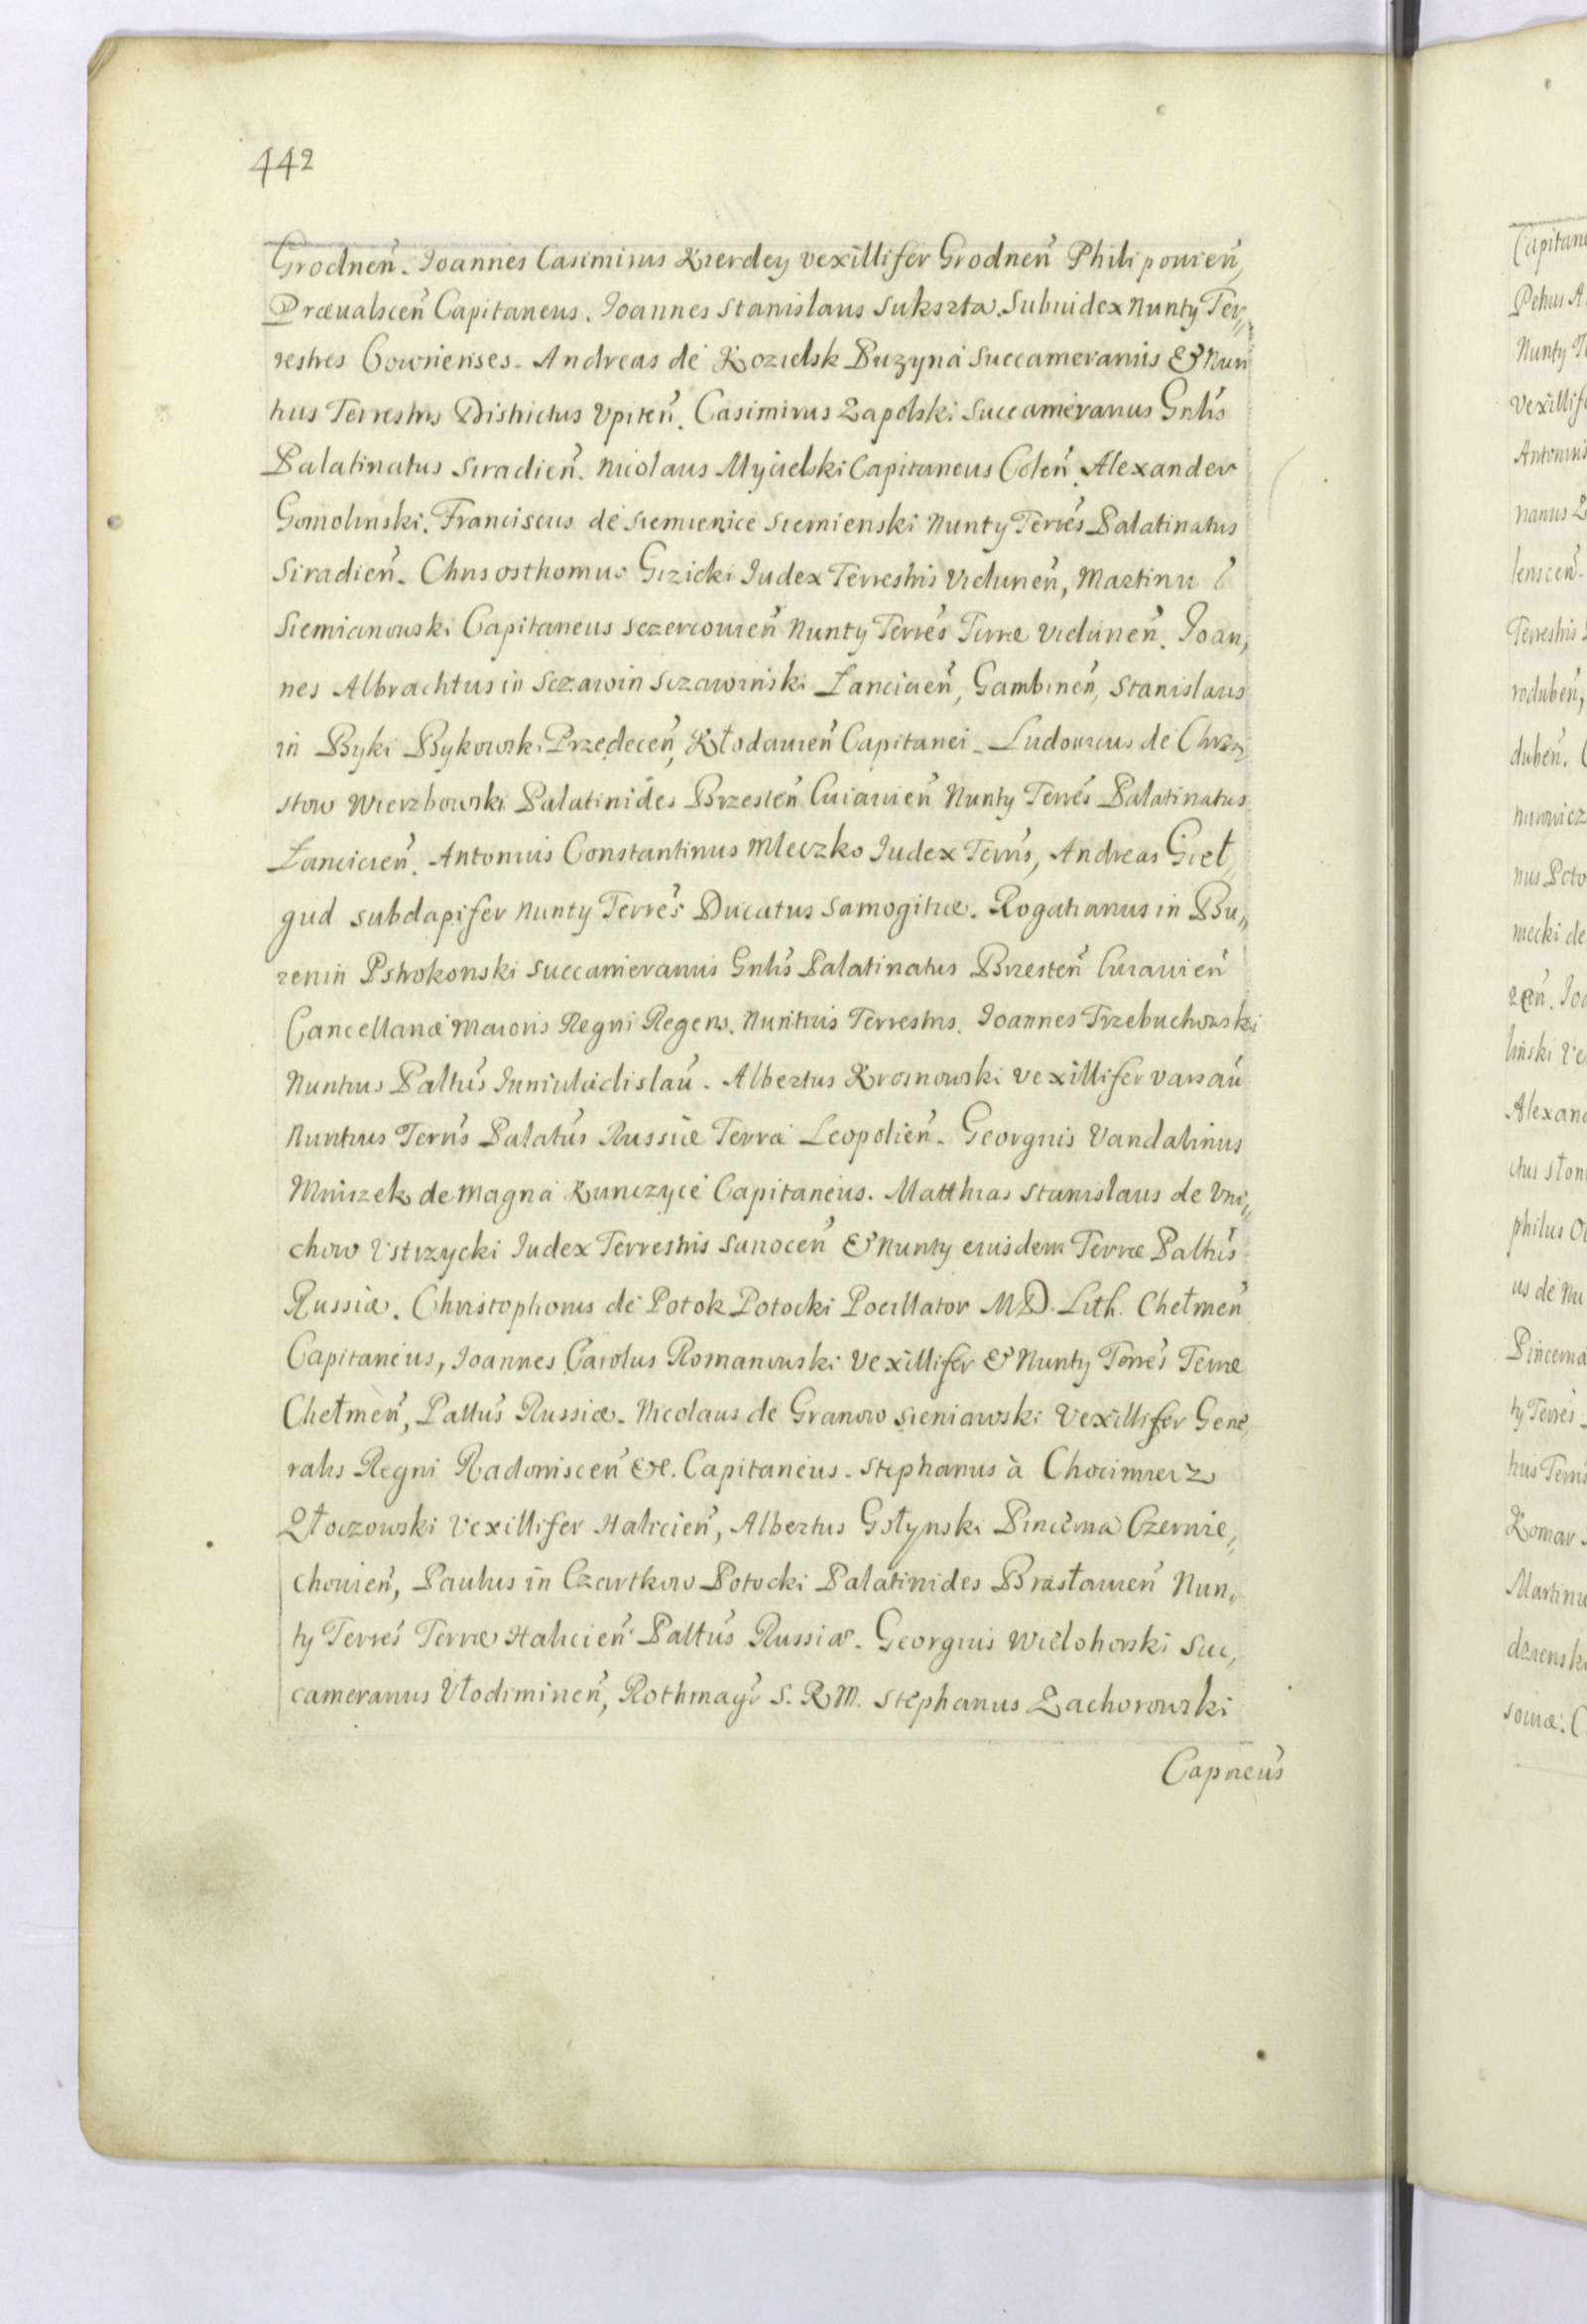 442
Grodneñ. Ioannes Casimirus Kierdey vexillifer Grodneñ Philipouieñ,
Præualsceñ Capitaneus. Ioannes Stanislaus Sukszta Subiudex Nuntÿ Ter,,
restres Cownenses. Andreas de Kozielsk Puzyna Succamerarius & Nun
tius Terrestris Districtus Vpiteñ. Casimirus Zapolski Succamerarius Gnlis
Palatinatus Siradieñ. Nicolaus Mycielski Capitaneus Coleñ. Alexander
Gomolinski. Franciscus de Siemienice Siemienski Nuntÿ Terrés Palatinatus
Siradieñ. Chrisosthomus Gizicki Iudex Terrestris Vieluneñ, Martinu
Siemianouski Capitaneus Sczercouieñ Nuntÿ Terrés Terræ Vieluneñ. Ioan,
nes Albrachtus in Sczawin Sczawinski Łancicieñ, Gambineñ, Stanislaus
in Byki Bykowski Przedeceñ, Kłodauieñ Capitanei. Ludouicus de Chrzą,
stow Wierzbowski Palatinides Brzesteñ Cuiauieñ Nuntÿ Terrés Palatinatus
Łancicieñ. Antonius Constantinus Mleczko Iudex Terris, Andreas Gieł,,
gud Subdapifer Nuntÿ Terrés Ducatus Samogitiæ. Rogatianus in Bu,,
renin Pstrokonski Succamerarius Gnlis Palatinatus Brzesteñ Cuiauieñ
Cancellariæ Maioris Regni Regens. Nuntius Terrestris. Ioannes Trzebuchowski
Nuntius Paltus Iuniuladislau. Albertus Krosnowski Vexillifer Varsau
Nuntius Terris Palatus Russiæ Terræ Leopolieñ. Georgius Vandalinus
Mniszek de Magna Kunczyce Capitaneus. Matthias Stanislaus de Vni,,
chow Vstrzycki Iudex Terrestris Sanoceñ & Nuntÿ eiusdem Terræ Paltus
Russiæ. Christophorus de Potok Potocki Pocillator M.D. Lith. Chełmeñ
Capitaneus, Ioannes Carolus Romanouski Vexillifer & Nuntÿ Terrés Terræ
Chełmeñ, Paltus Russiæ. Nicolaus de Granow Sieniawski Vexillifer Gene,
ralis Regni Radomsceñ &c. Capitaneus. Stephanus à Chocimierz
Złoczowski Vexillifer Halicieñ, Albertus Gołynski Pincerna Czernie,,
chouieñ, Paulus in Czartkow Potocki Palatinides Brasłauieñ Nun,
tÿ Terrés Terræ Halicieñ Paltus Russiæ. Georgius Wielohorski Suc,
camerarius Vłodimirieñ, Rothmagr S. R. M. Stephanus Zachorowski
Capneus